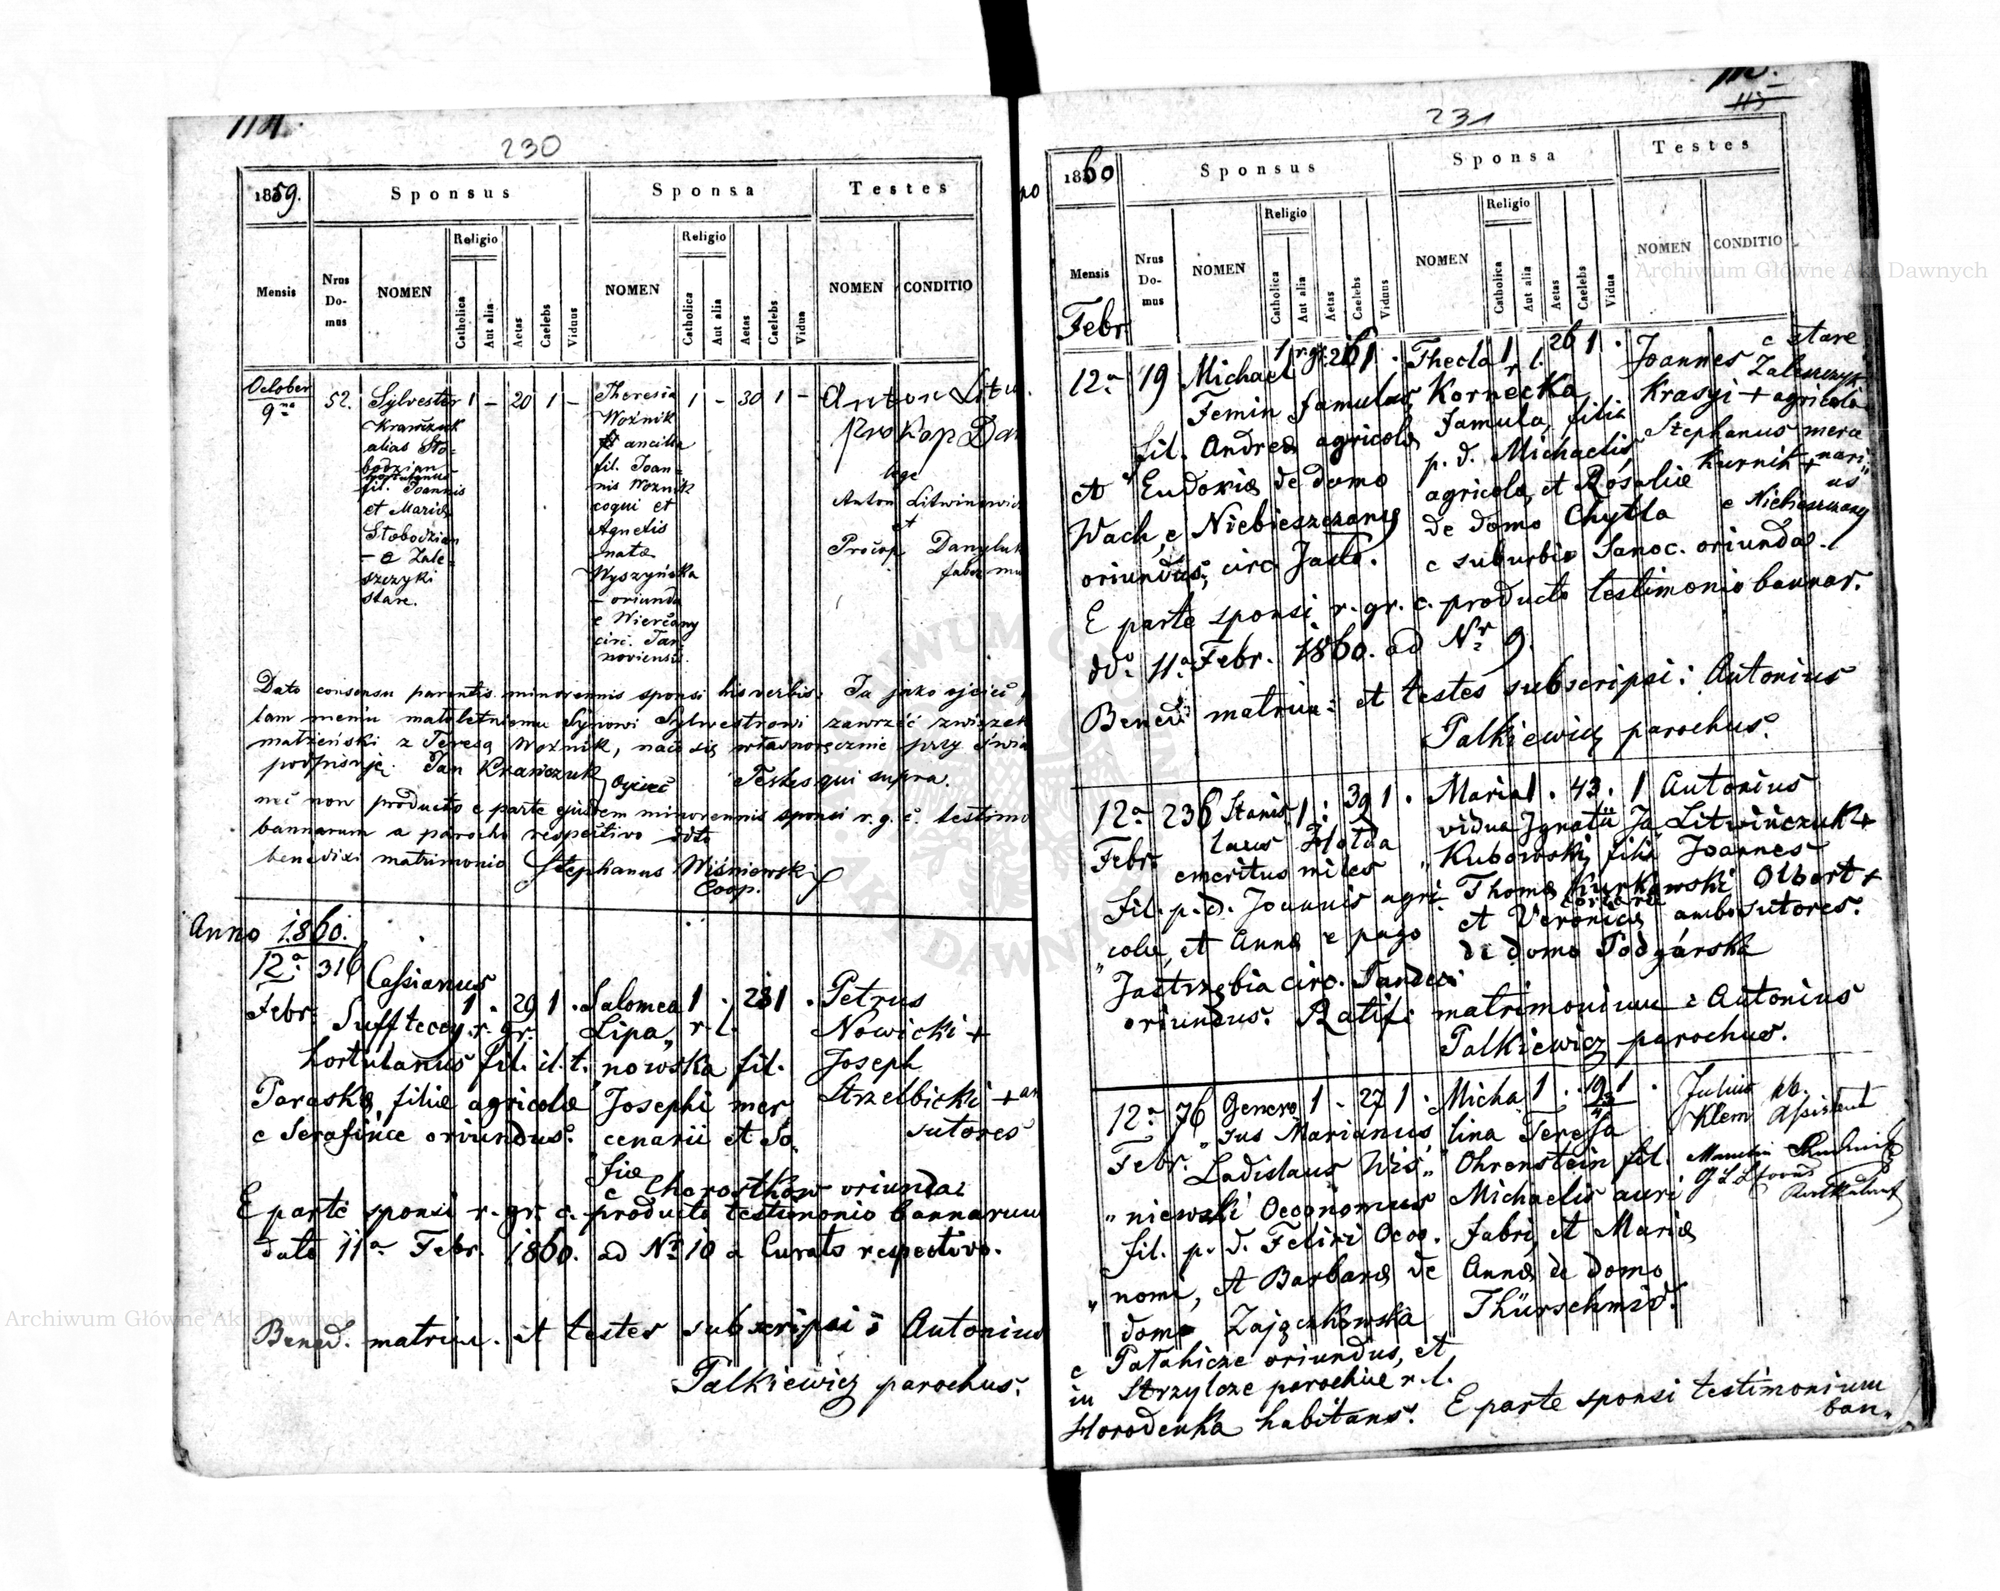 114.
230
1859.
Sponsus
Sponsa
Testes
Mensis
Nrus Do-mus
NOMEN
Religio
Catholica
Aut alia
Aetas
Caelebs
Viduus
NOMEN
Religio
Catholica
Aut alia
Aetas
Caelebs
Vidua
NOMEN
CONDITIO
October 9na
52.
Sylvester 1 - 20 1 -
Krawczuk
alias Sło-
bodzian
fil. Joannis
et Mariæ
Słobodzian
- e Zale-
szczyki
stare.
Theresia 1 - 30 1 -
Woźnik
ancilla
fil. Joan-
nis Woźnik
coqui et
Agnetis
natæ
Wyszyńska
- oriunda
e Wierzany
circ. Tar
noviensis.
Anton Litw
Prokop Dan
lege
Anton Litwinowicz
et
Procop Danyluk
faber mu
Dato consensu parentis minorennis sponsi his verbis: Ja jako ojciec
łam memu małoletniemu Synowi Sylwestrowi zawrzéć związek
małżeński z Teresą Woźnik, nacо się własnoręcznie przy świa
podpisuję. Jan Krawczuk Ojciec Testes qui supra.
nec non producto e parte ejusdem minorennis sponsi r. g. c. testimo
bannarum a parocho respectivo dto
benedixi matrimonio Stephanus Wiśniewski
Coop.
Anno 1860.
12a Febr.
316
Cassianus
1 - 29 1 .
r. gr.
hortulanus fil. il. t.
Paraskæ, filiæ agricolæ
e Serafince oriundus.
Salomea 1 . 23 1 .
Lipa„ r. l.
„nowska fil.
Josephi mer
cenarii et So„
„fiæ
e Chorostków oriunda
Petrus
Nowicki +
Joseph
Strzelbicki +
sutores
E parte sponsi r. gr. c. producto testimonio bannarum
dato 11a Febr. 1860. ad Nr 10 a Curato respectivo.
Bened. matrim. et testes subscripsi: Antonius
Palkiewicz parochus.
231
115
1860
Sponsus
Sponsa
Testes
Mensis
Nrus Do-mus
NOMEN
Religio
Catholica
Aut alia
Aetas
Caelebs
Viduus
NOMEN
Religio
Catholica
Aut alia
Aetas
Caelebs
Vidua
NOMEN
CONDITIO
Febr
12a
19
Michael 1 r.gr. 26 1 .
Femin famulus
fil. Andreæ agricolæ
et Eudoxiæ de domo
Wach, e Niebieszczany
oriundus, circ. Jasło.
Thecla 1 r. l. 26 1 .
Kornecka
famula, filia
p. d. Michaelis
agricolæ, et Rosaliæ
de domo Chytla
e suburbio Sanoc. oriunda.
Joannes
Krasyi +
Stephanus
Kurnik +
e stare
Zaleszczyki
agricola
merce
nari
us
e Niebieszczany
E parte sponsi r. gr. c. producto testimonio bannar.
ddo 11a Febr. 1860. ad Nr 9.
Bened. matrim: et testes subscripsi: Antonius
Palkiewicz parochus.
12a
Febr.
236
Stanis 1 . 39 1 .
laus Hołda
emeritus miles
fil. p. d. Joannis agri
„colæ, et Annæ e pago
Jastrzębia circ. Sandec:
oriundus.
Maria 1 . 43 . 1
vidua Ignatii Ja
„Kubowski, filia
Thomæ Kurkowski
et Veronicæ
de domo Podgórska
Antonius
Litwińczuk +
Joannes
Olbert +
ambo sutores.
Ratif: matrimonium: Antonius
Palkiewicz parochus.
12a
Febr.
76
Genero 1 - 27 1 .
„sus Marianus
Ladislaus Wiś„
„niewski Oeconomus
fil. p. d. Felixi Oeco.
„nomi, et Barbaræ de
domo Zajączkowska
e Patahicze oriundus, et
in Strzylcze parochiæ r. l.
Horodenka habitans.
Micha 1 . 19 1 .
lina Teresa
Ohrenstein fil.
Michaelis auri
fabri, et Mariæ
Annæ de domo
Thürschmid.
Julius
Klem Assistent
E parte sponsi testimonium
ban„
Archiwum Główne Akt Dawnych
Archiwum Główne Akt Dawnych